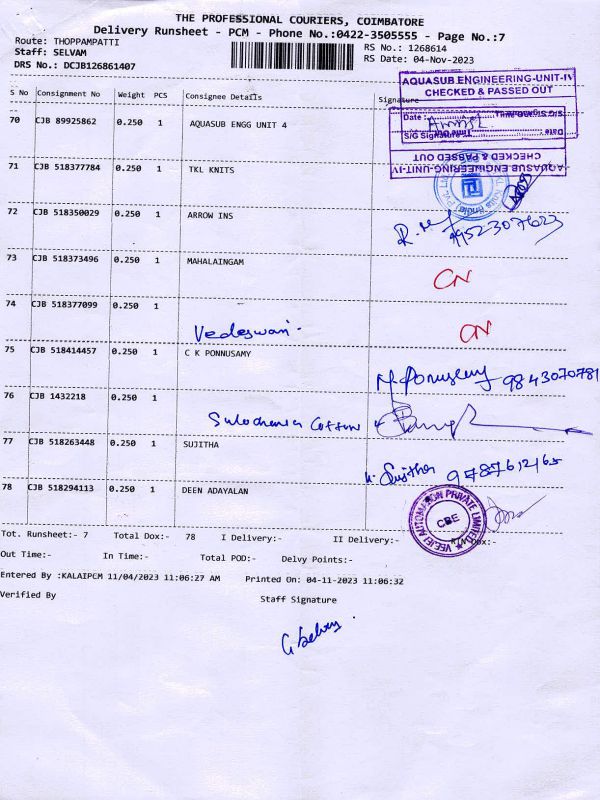 THE PROFESSIONAL COURIERS, COIMBATORE
Delivery Runsheet - PCM - Phone No.:0422-3505555 - Page No.:7
Route: THOPPAMPATTI
Staff: SELVAM
DRS No.: DCJB126861407
RS No.: 1268614
RS Date: 04-Nov-2023
S No Consignment No Weight PCS Consignee Details Signature
AQUASUB ENGINEERING-UNIT-IV
CHECKED & PASSED OUT
70 CJB 89925862 0.250 1 AQUASUB ENGG UNIT 4
Date :
S/G Signature :
AQUASUB ENGINEERING-UNIT-IV
CHECKED & PASSED OUT
71 CJB 518377784 0.250 1 TKL KNITS
72 CJB 518350029 0.250 1 ARROW INS
9952307623
73 CJB 518373496 0.250 1 MAHALAINGAM
CN
74 CJB 518377099 0.250 1
Vedeswari - CN
75 CJB 518414457 0.250 1 C K PONNUSAMY
9843070781
76 CJB 1432218 0.250 1
77 CJB 518263448 0.250 1 SUJITHA
Sujitha
78 CJB 518294113 0.250 1 DEEN ADAYALAN
VEEJEI AUTOMATION PRIVATE LIMITED
CBE
Tot. Runsheet:- 7 Total Dox:- 78 I Delivery:- II Delivery:-
Out Time:- In Time:- Total POD:- Delvy Points:-
Entered By :KALAIPCM 11/04/2023 11:06:27 AM Printed On: 04-11-2023 11:06:32
Verified By Staff Signature